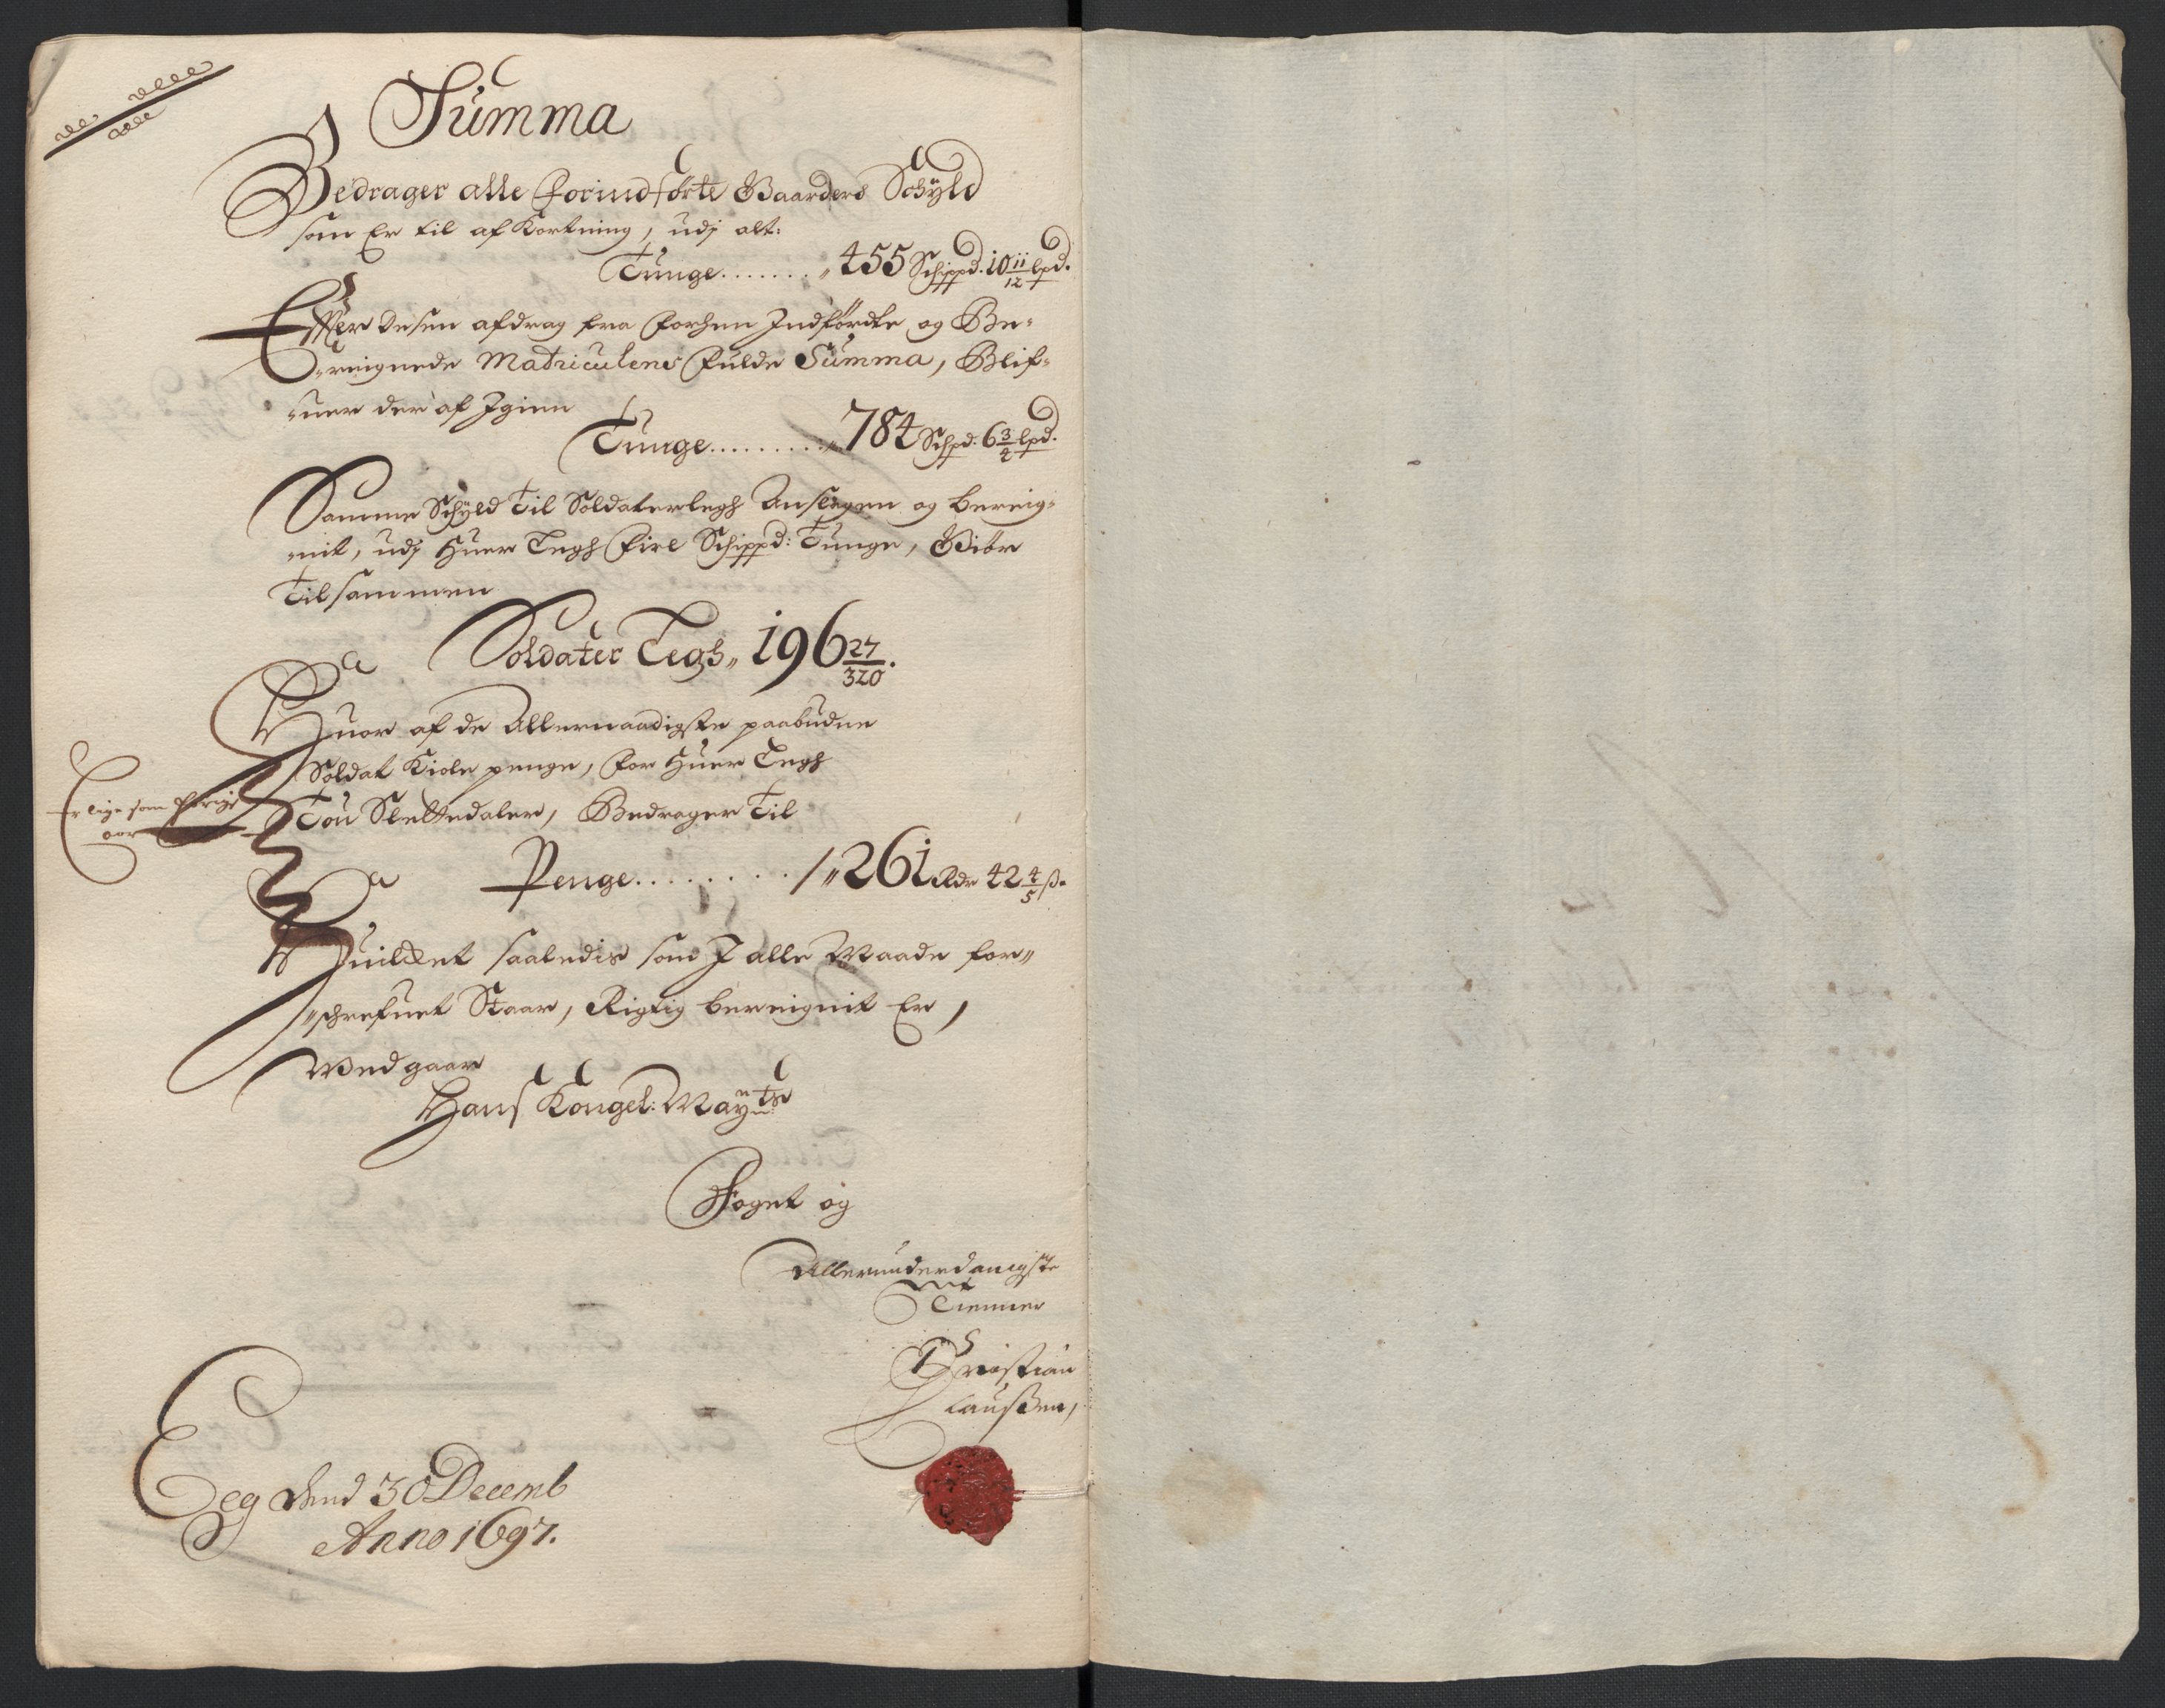 Summa
Bedrager alle forindførte Gaarders Schÿld
som Er til afkortning, udj alt:
Tunge ....... „ 455 Schippd. 10 11/12 lpd.
Effter desen afdrag fra forhen Indførdte og Be-
-reignede Matriculens fulde Summa, Blif-
-uer der af Igien
Tunge ......... „ 784 Schpd: 6 3/4 lpd.
Samme Schÿld til Soldaterlegh Anslagen og bereig-
-nit, udj huer Legh fire Schippd: Tunge, Giør
Tilsammen
Soldater Legh „ 196 27/320.
Huor af de Allernaadigste paabudne
Soldat Kiole penge, for huer Legh
Er lige som forige
aar
Tou Slettedaler, Bedrager til
Penge ........ / „ 261 Rdr 42 4/5 ß.
Huilket saaledis som I alle Maade for„
„schrefuet Staar, Rigtig bereignit Er,
Wedgaar
Hans Kongel: Mayts
Foget og
Allerunderdanigste
Tienner
Christian
Laußen,
Eeg dend 30 Decemb
Anno 1697.